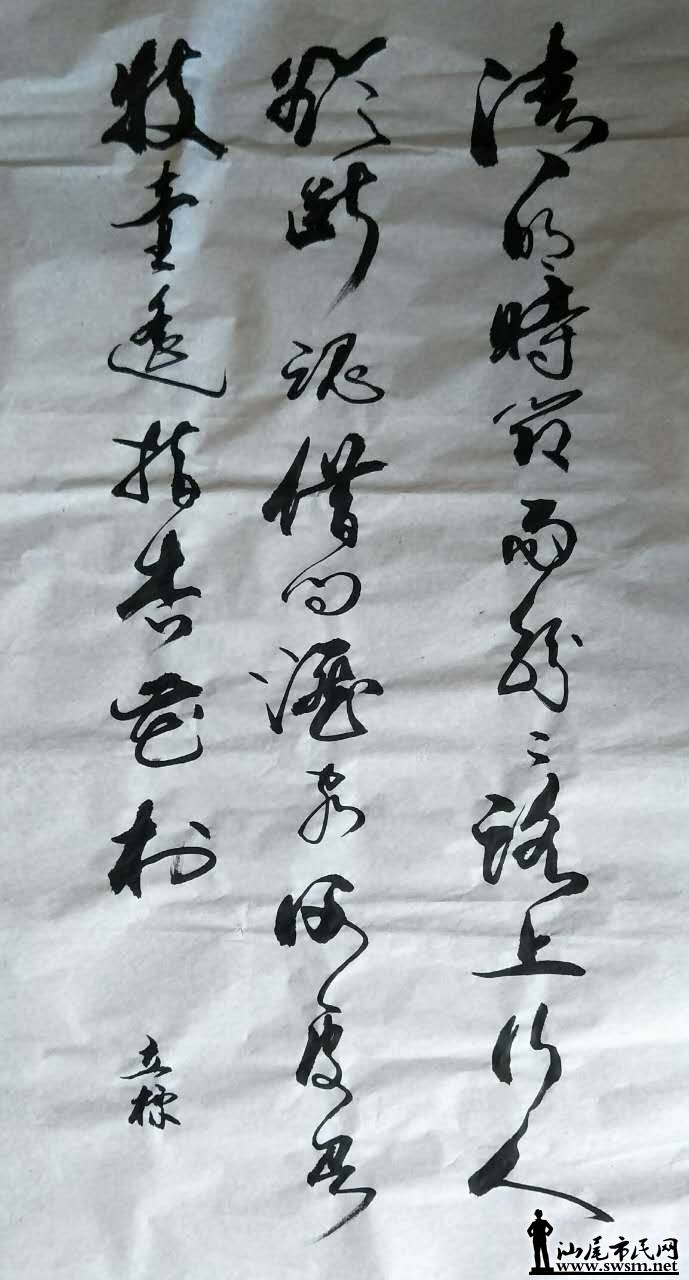 清明時節雨紛々路上行人
欲斷魂借問酒家何處有
牧童遙指杏花村
立
汕尾市民网
www.swsm.net